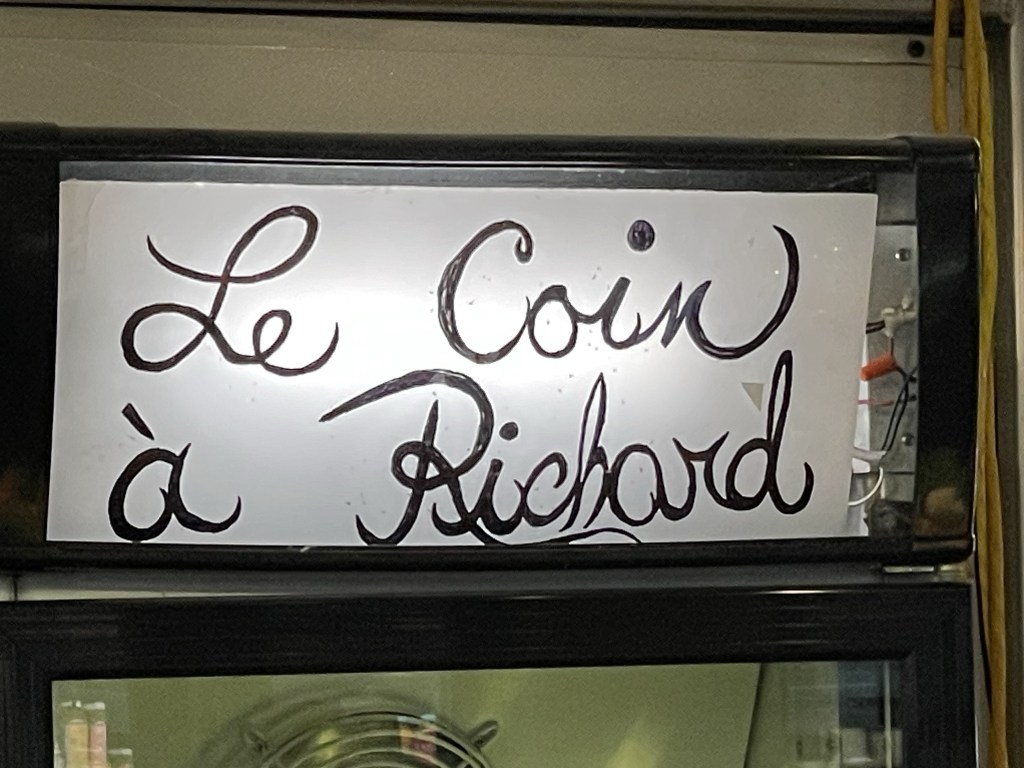 Le Coin
à Richard